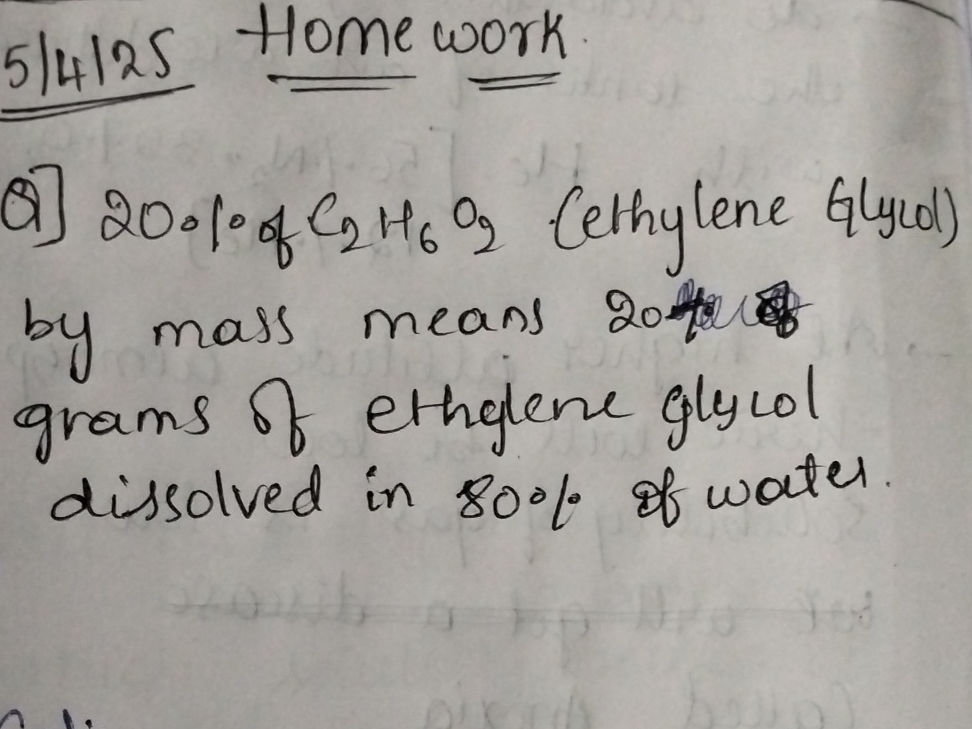 5/4/25 Home work.
Q] 20% of C2H6O2 (ethylene Glycol)
by mass means 20
grams of ethylene glycol
dissolved in 80% of water.